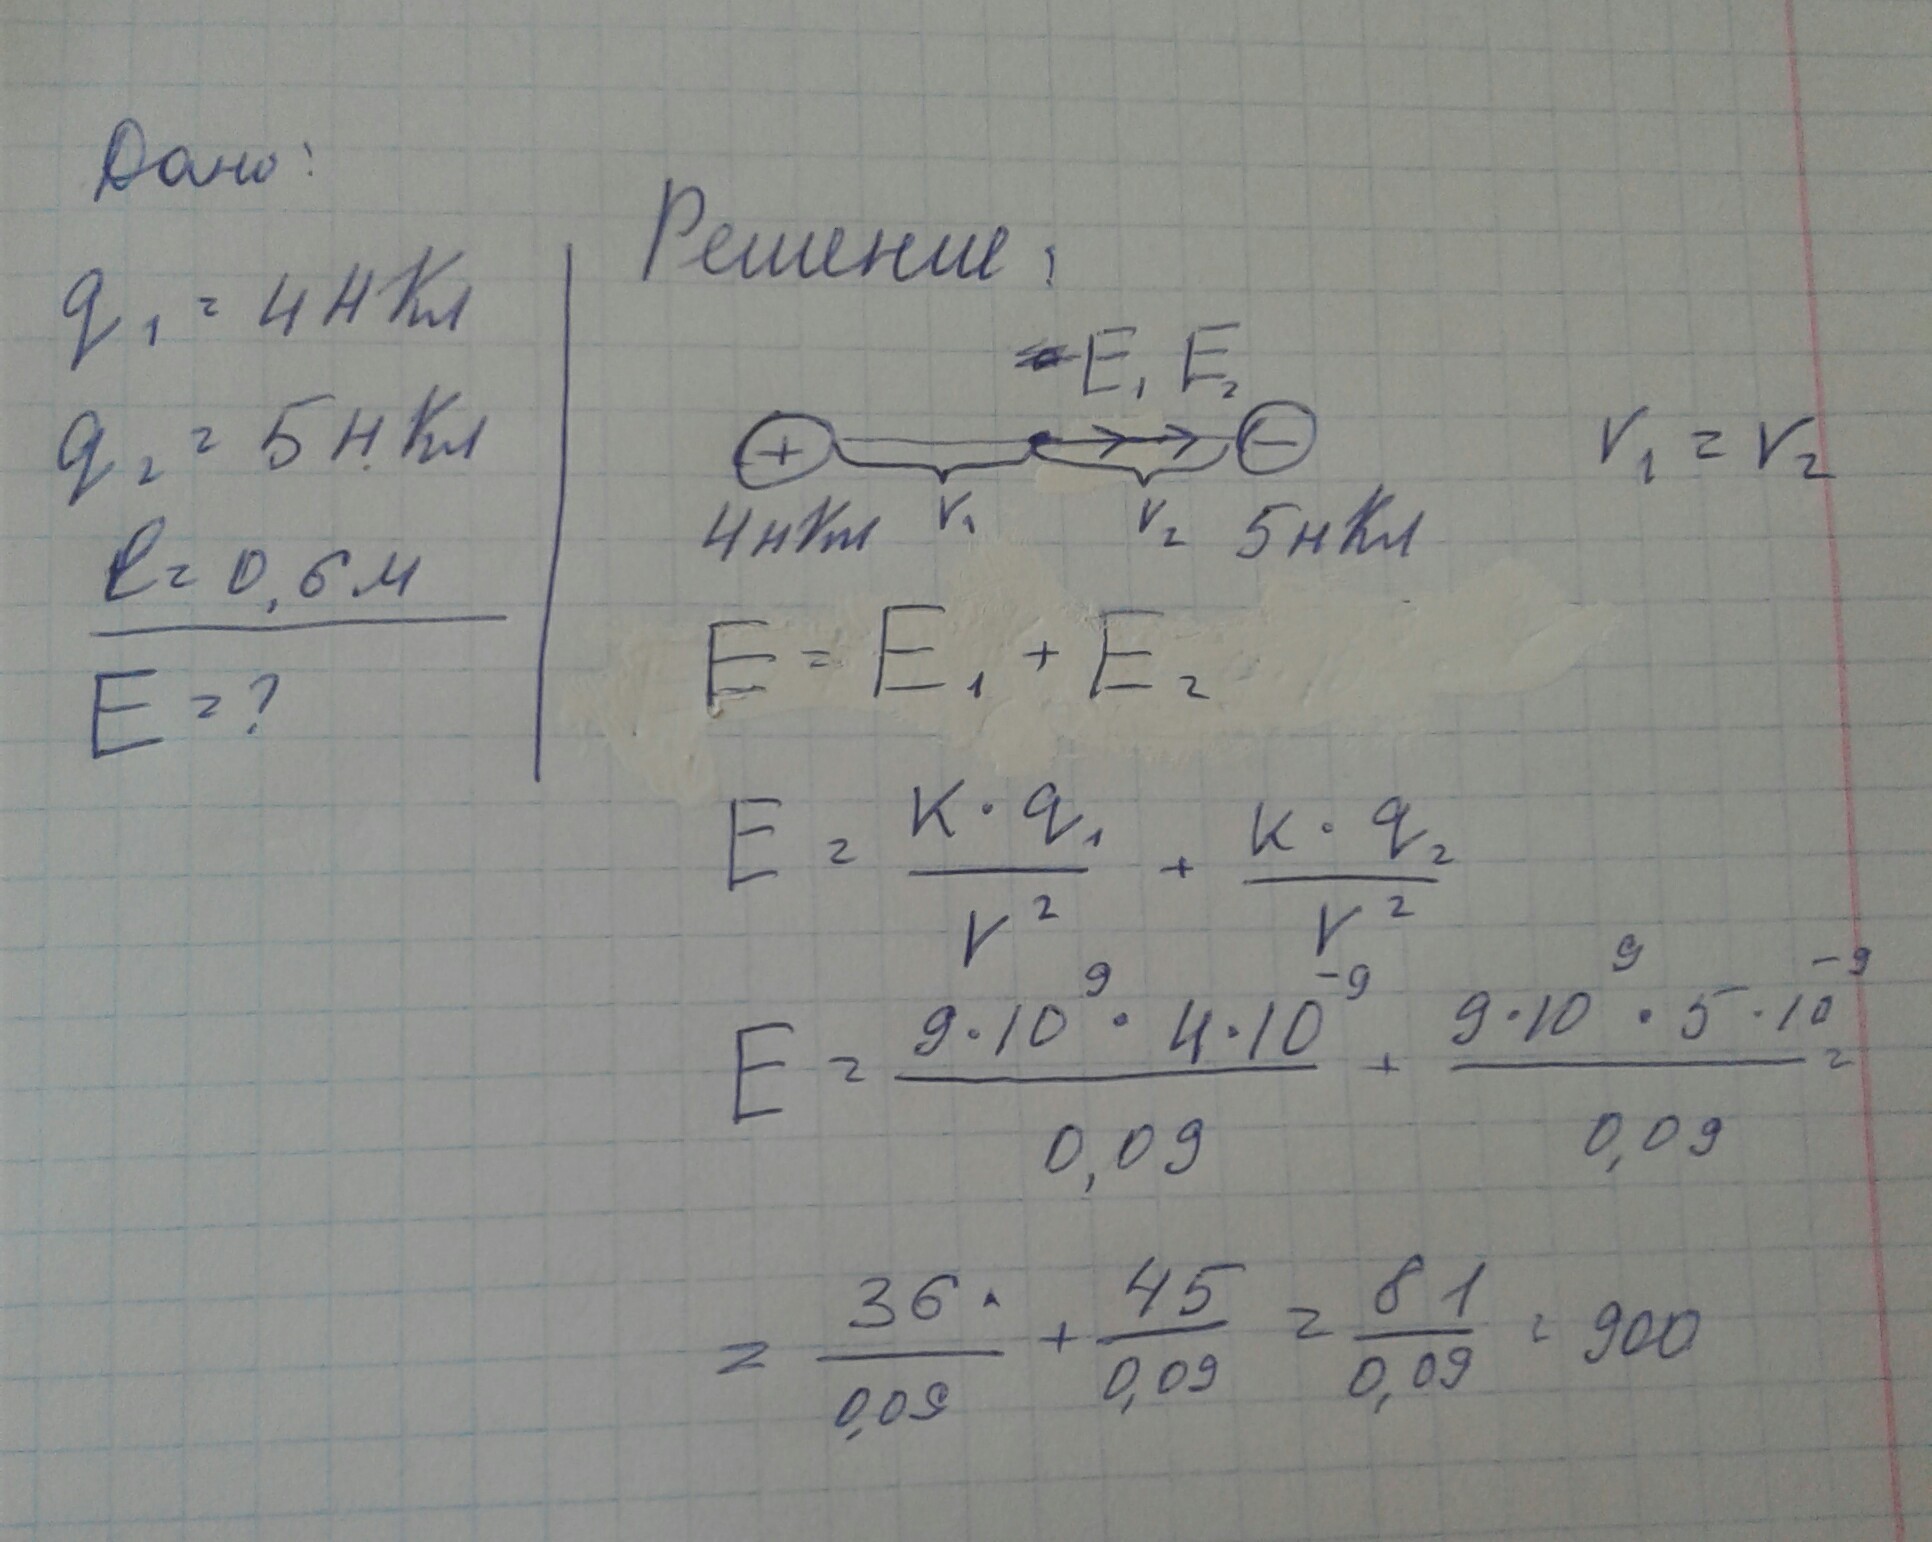 Дано:
q₁ = 4 нКл
q₂ = 5 нКл
l = 0,6 м
E = ?
Решение:
E₁ E₂
+ −
r₁ = r₂
4нКл r₁ r₂ 5нКл
E = E₁ + E₂
E = (k · q₁)/r² + (k · q₂)/r²
E = (9·10⁹ · 4·10⁻⁹)/0,09 + (9·10⁹ · 5·10⁻⁹)/0,09 =
= 36/0,09 + 45/0,09 = 81/0,09 = 900